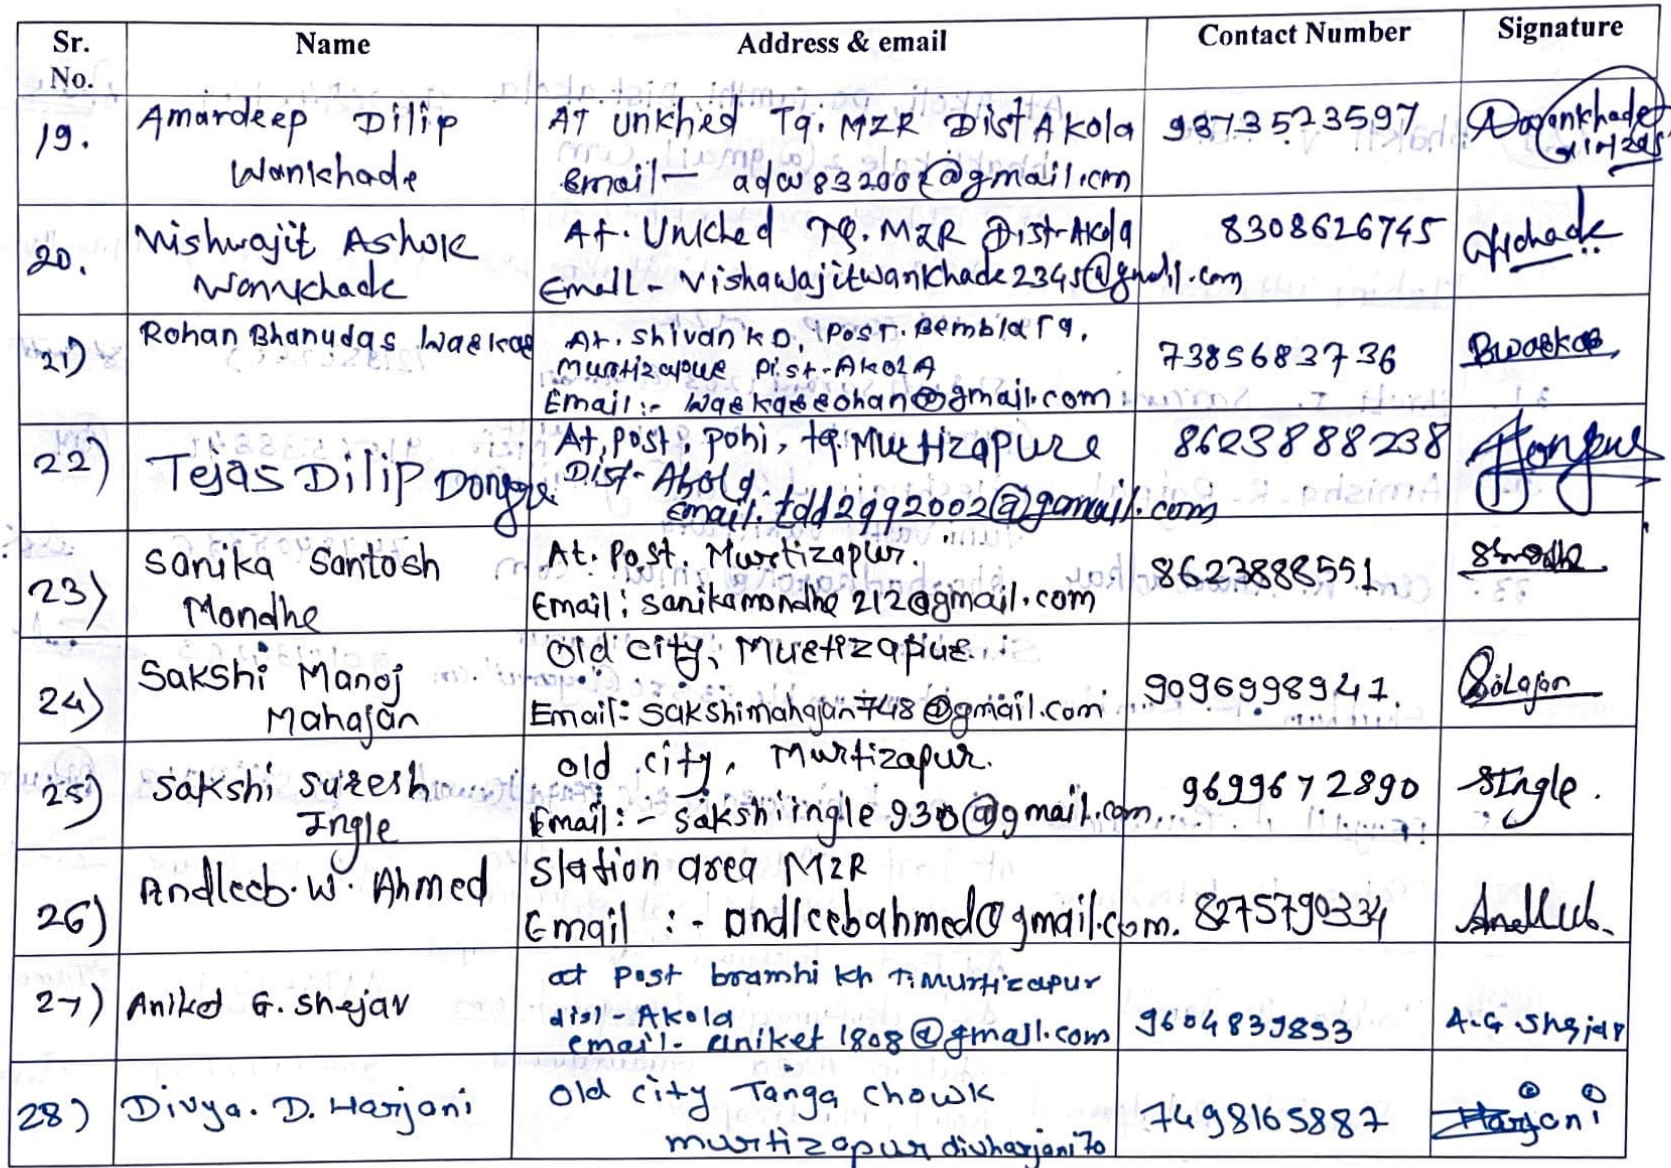 Sr. No. Name Address & email Contact Number Signature
19. Amardeep Dilip Wankhade
At Unkhed Tq. MZR Dist Akola
Email - @gmail.com
9373523597
20. Vishwajit Ashok Wankhade
At. Unkhed Tq. MZR Dist-Akola
Email - vishawajitwankhade2345@gmail.com
8308626745
21) Rohan Bhanudas Waskar
At. Shivan kD, Post. Bembla Tq.
Murtizapur Dist-Akola
Email:- waskarrohan@gmail.com
7385683736
22) Tejas Dilip Dongre
At, post, pohi, tq. Murtizapure
Dist- Akola
Email: tdd2992002@gamail.com
8623888238
23) Sanika Santosh Mondhe
At. Post. Murtizapur.
Email: sanikamondhe212@gmail.com
8623888551
24) Sakshi Manoj Mahajan
Old city, Murtizapur
Email: sakshimahajan748@gmail.com
9096998941.
25) Sakshi Suresh Ingle
old city, Murtizapur.
Email:- sakshiingle930@gmail.com
9699672890
SIngle.
26) Andleeb. W. Ahmed
Station area MZR
Email :- andleebahmed@gmail.com.
8275790334
Andleeb.
27) Aniket G. Shejav
at Post bramhi kh T. Murtizapur
dist- Akola
email- aniket1808@gmail.com
9604839893
A.G. Shejav
28) Divya. D. Harjani
Old city Tanga chowk
murtizapur divharjani70
7498165887
Harjani